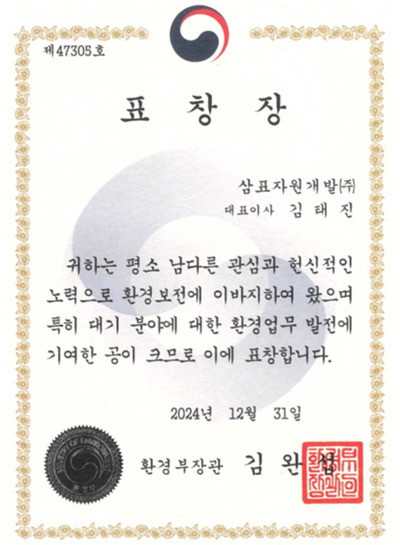 제 47305 호
표 창 장
삼표자원개발(주)
대표이사 김 태 진
귀하는 평소 남다른 관심과 헌신적인
노력으로 환경보전에 이바지하여 왔으며
특히 대기 분야에 대한 환경업무 발전에
기여한 공이 크므로 이에 표창합니다.
2024년 12월 31일
환경부장관 김 완 섭